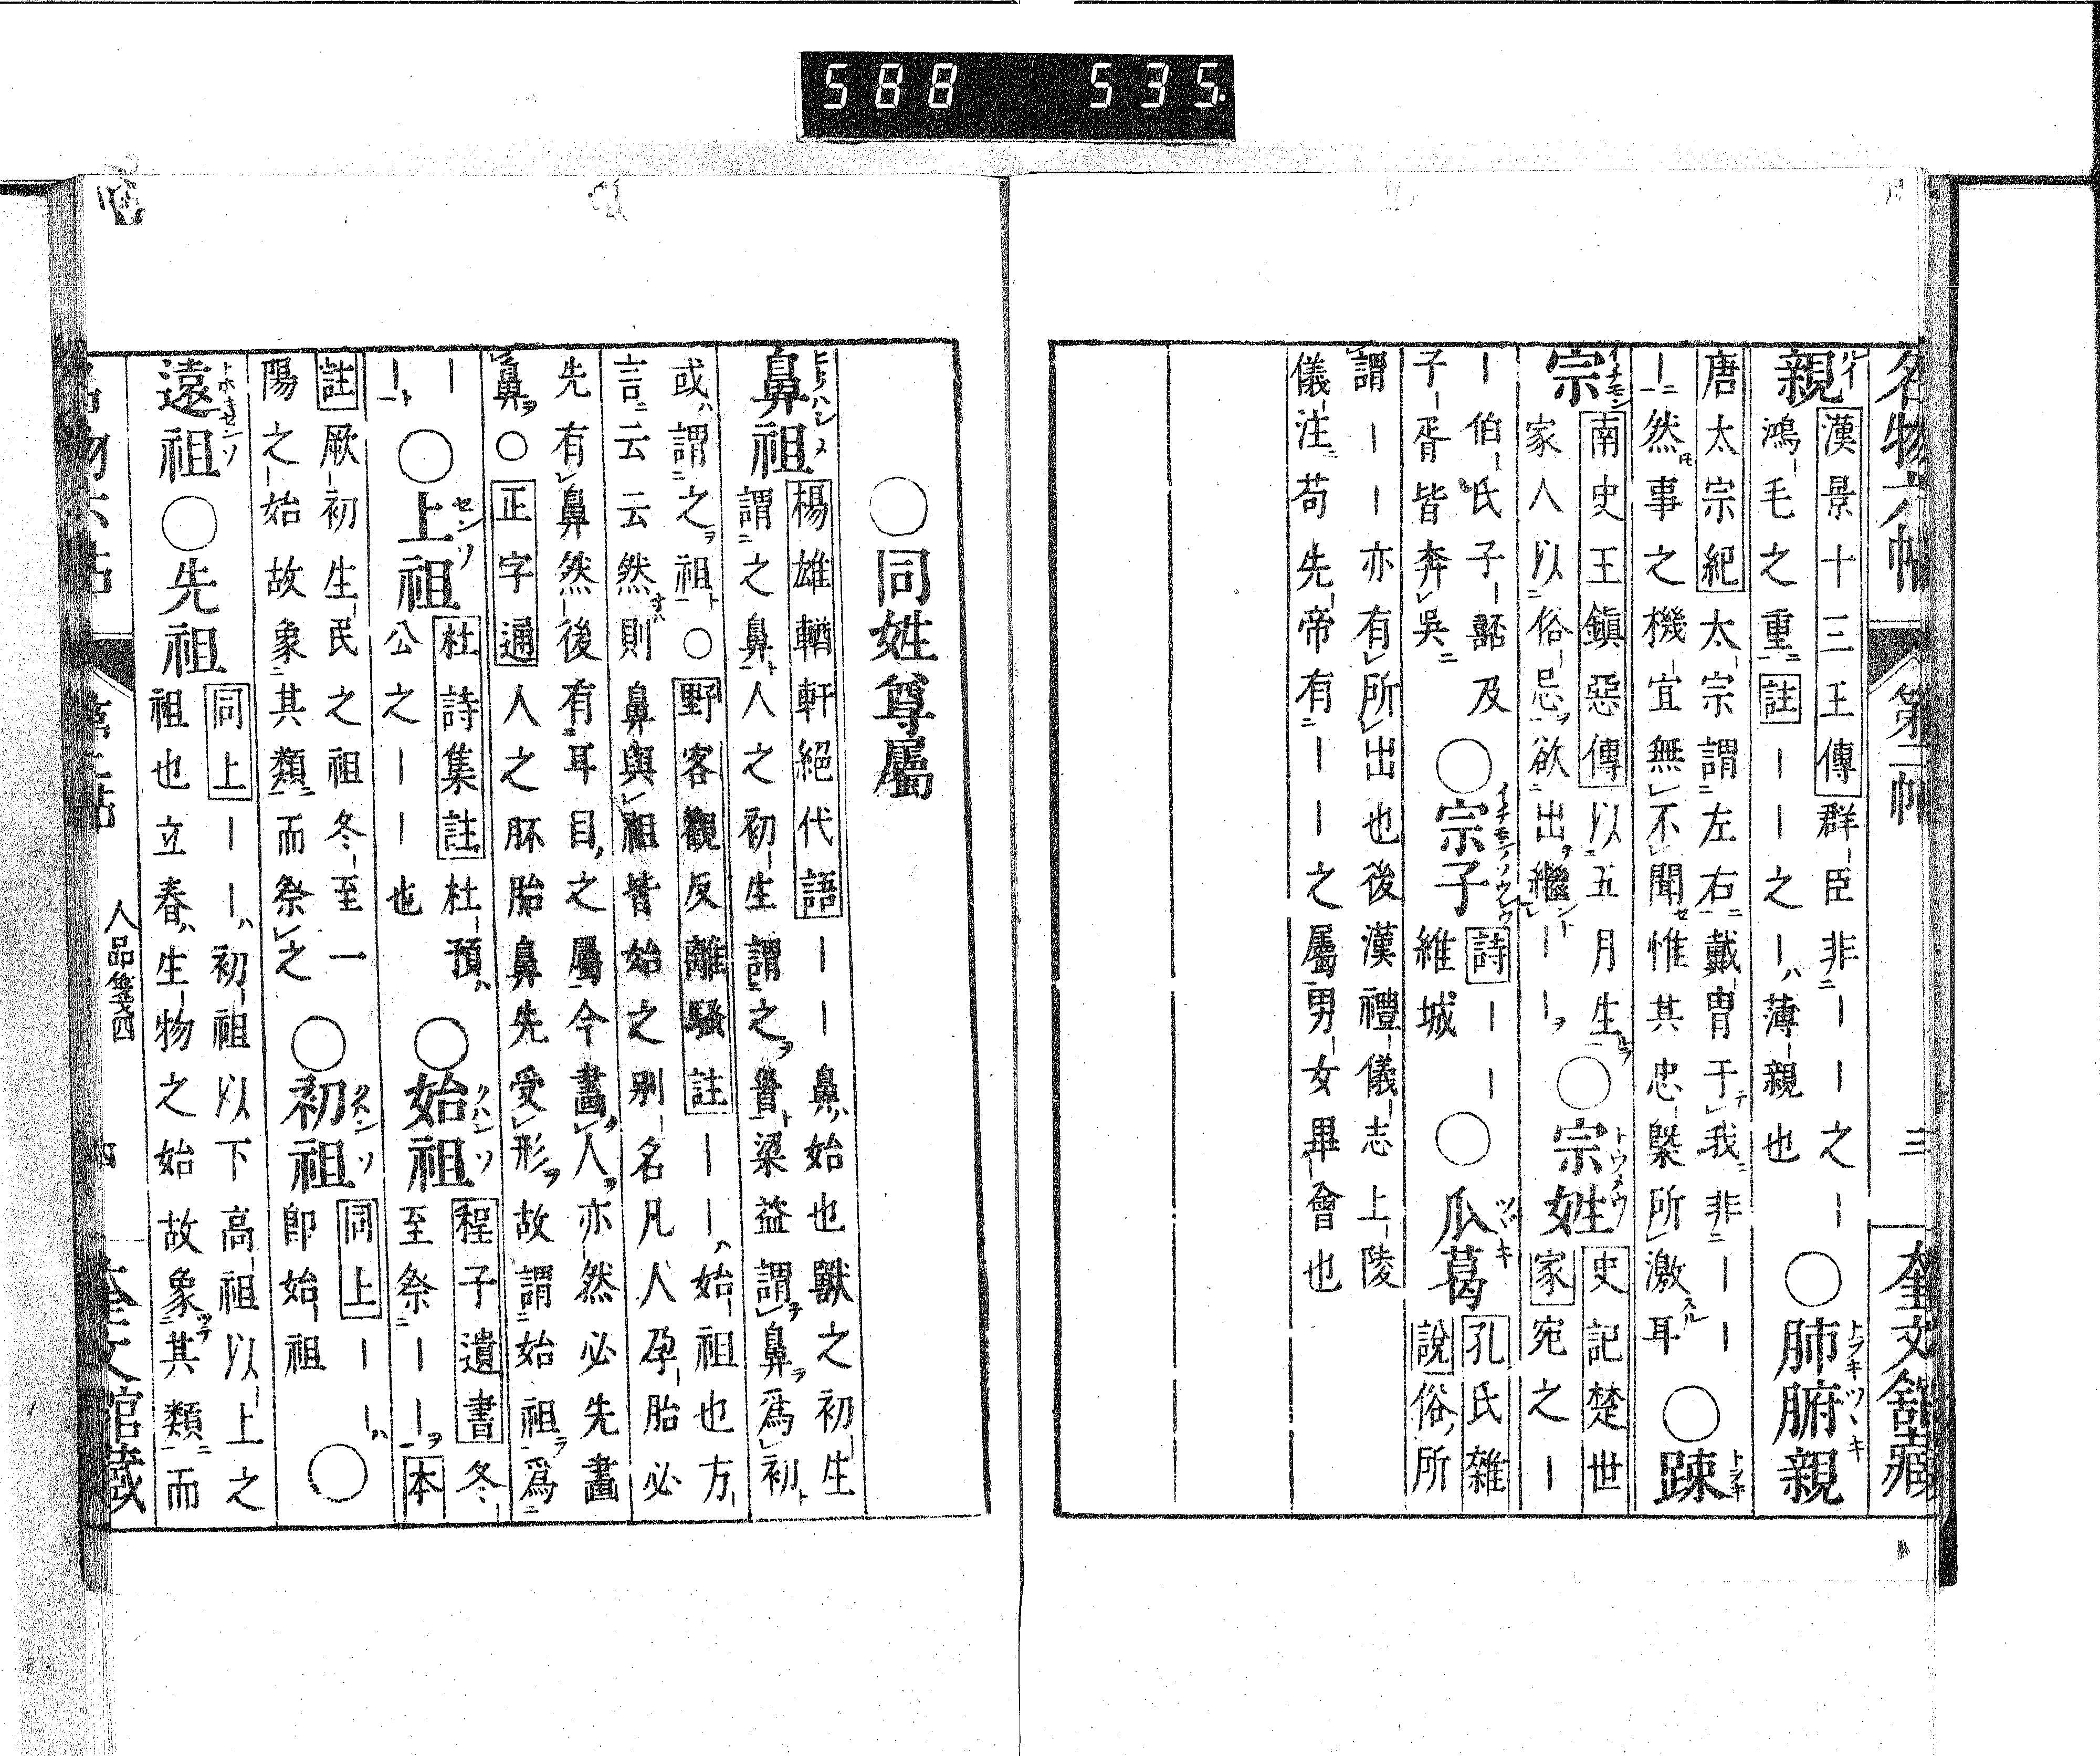 588 535.
名物六帖 第二帖 三 奎文舘藏
親 漢景十三王傳 群臣非ーー之ー
鴻毛之重 註 ーー之ー薄親也 ○肺腑親
唐太宗紀 太宗謂左右戴冑于我非ーー
ー然事之機宜無不聞惟其忠槩所激耳 ○踈
宗 南史王鎭惡傳 以五月生
家人以俗忌欲出繼ーー ○宗姓 史記楚世家 宛之ー
ー伯氏子嚭及
子胥皆奔吳 ○宗子 詩 ーー
維城 ○瓜葛 孔氏雜說 俗所
謂ーー亦有所出也後漢禮儀志上陵
儀注苟先帝有ーー之屬男女畢會也
○同姓尊屬
鼻祖 楊雄輶軒絕代語 ーー鼻始也獸之初生
謂之鼻人之初生謂之首梁益謂鼻爲初
或謂之祖○野客觀反離騷註 ーー始祖也方
言云云然則鼻與祖皆始之別名凡人孕胎必
先有鼻然後有耳目之屬今畫人亦然必先畫
鼻○正字通 人之胚胎鼻先受形故謂始祖爲
ー
ー ○上祖 杜詩集註 杜預
公之ーー也 ○始祖 程子遺書 冬
至祭ーー 本
註 厥初生民之祖冬至一
陽之始故象其類而祭之 ○初祖 同上 ーー
即始祖 ○
遠祖 ○先祖 同上 ーー初祖以下高祖以上之
祖也立春生物之始故象其類而
名物六帖 第二帖 人品箋四 四 奎文館藏